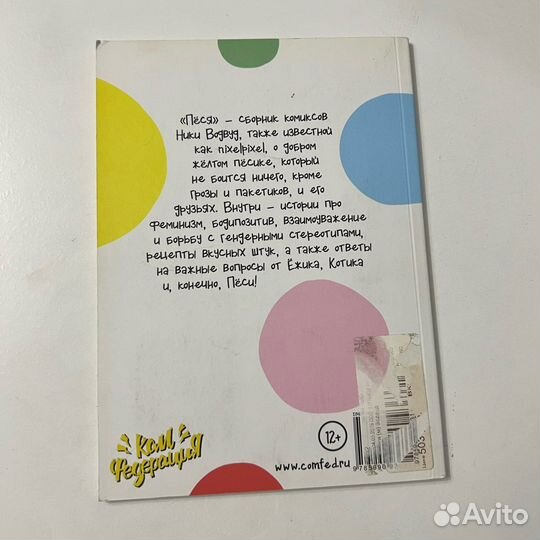 «Пёся» – сборник комиксов
Ники Водвуд, также известной
как nixelpixel, о добром
жёлтом пёсике, который
не боится ничего, кроме
грозы и пакетиков, и его
друзьях. Внутри – истории про
феминизм, бодипозитив, взаимоуважение
и борьбу с гендерными стереотипами,
рецепты вкусных штук, а также ответы
на важные вопросы от Ёжика, Котика
и, конечно, Пёси!
Ком
Федерация
12+
www.comfed.ru
503
Avito